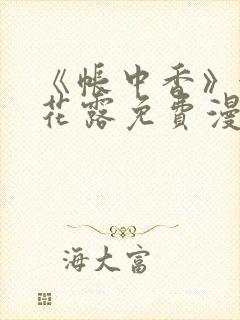 《帐中香》
花露免费漫
海大富